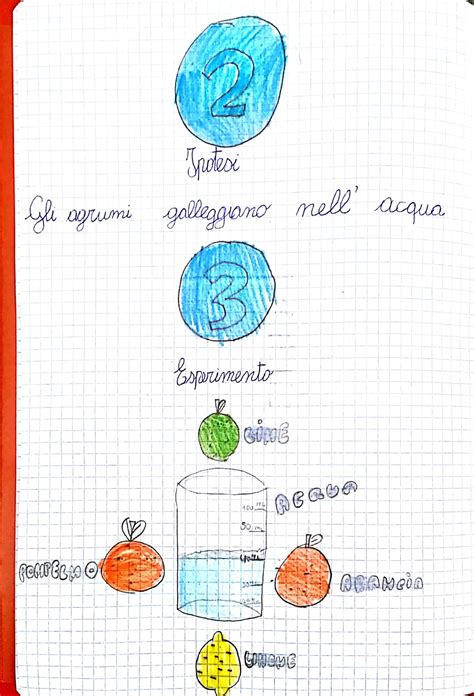 2
Ipotesi
Gli agrumi galleggiano nell' acqua
3
Esperimento
LIME
ACQUA
POMPELMO
ARANCIA
LIMONE